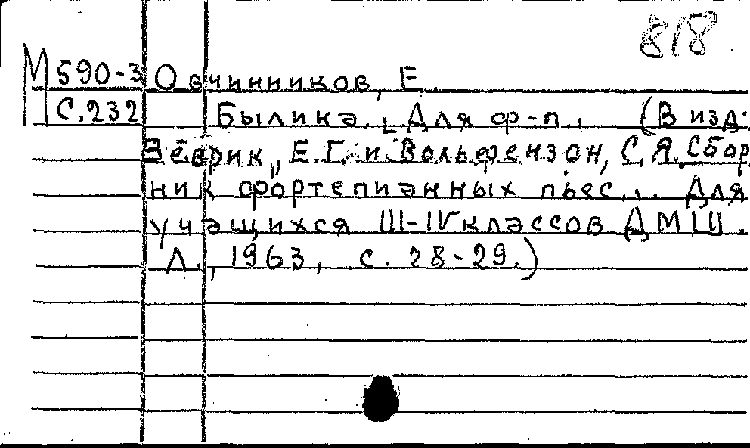 818
М590-3 Овчинников, Е.
С.232 Былина. [Для ф-п.. (В изд:
Зёврик, Е.Г. и Вольфензон, С.Я. Сбор
ник фортепианных пьес... Для
учащихся III-IV классов ДМШ.
Л., 1963, с. 28-29.)